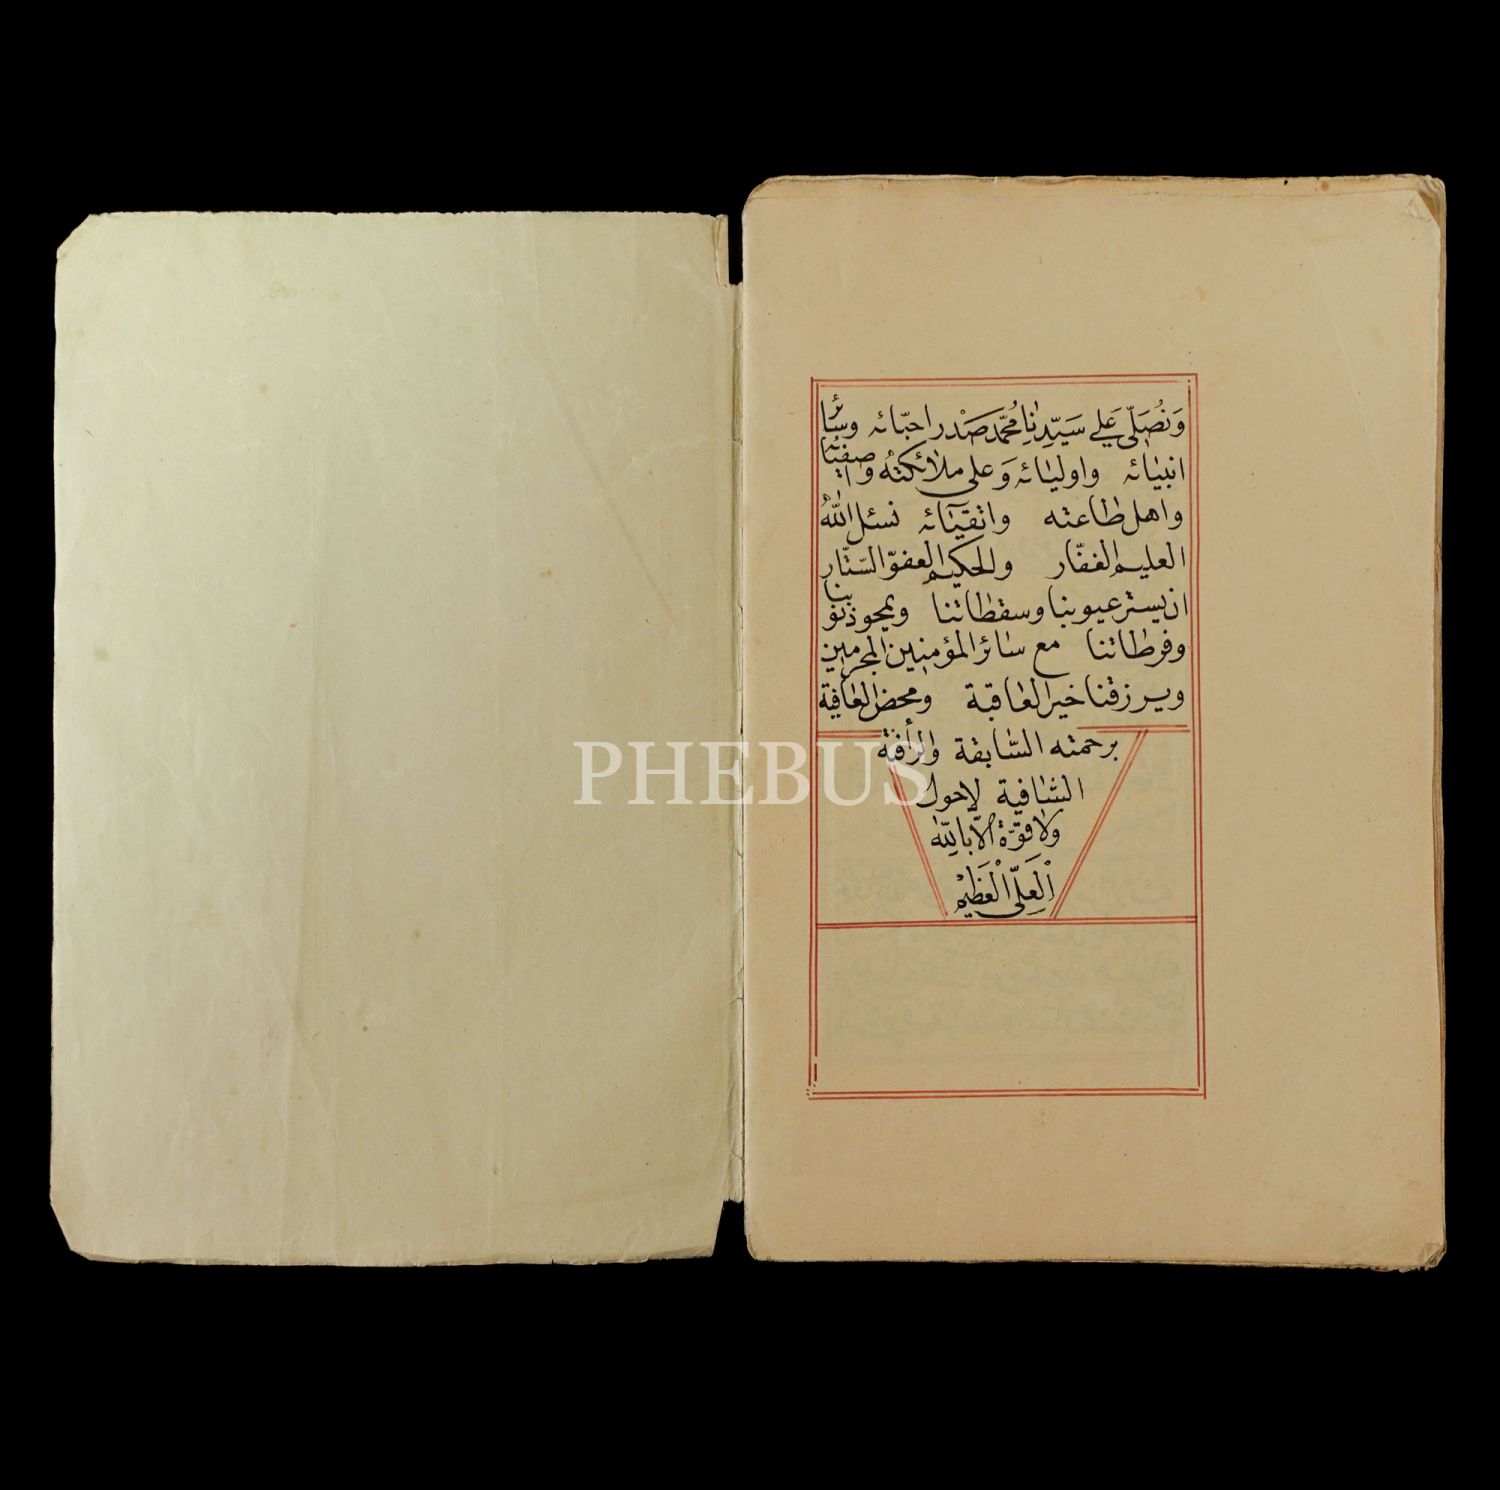 وَنُصَلّى عَلى سَيّدِنٰا مُحمّد صَدْر احبّائه وسٰائر
انبيٰائه واوليٰائه وَعلى ملائكتهُ واصفيٰائه
واهل طاعته واتقيٰائه نسئل اللهُ
العليم الغفّار والحكيم العفوّ السّتّار
ان يستر عيوبنا وسقطاتنا ويمحو ذنوبنا
وفرطاتنا مع سٰائر المؤمنين المجرمين
ويرزقنا خير العاقبة ومحض العافية
برحمته السّابقة والرأفة
الشافية لاحول
ولاقوّة الّابالله
اْلعَلّى اْلعَظيمْ
PHEBUS